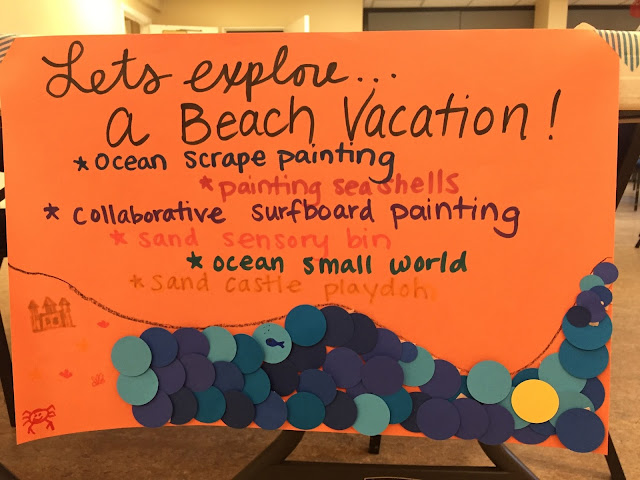 Lets explore...
a Beach Vacation!
*ocean scrape painting
*painting seashells
*collaborative surfboard painting
*sand sensory bin
*ocean small world
*sand castle playdoh